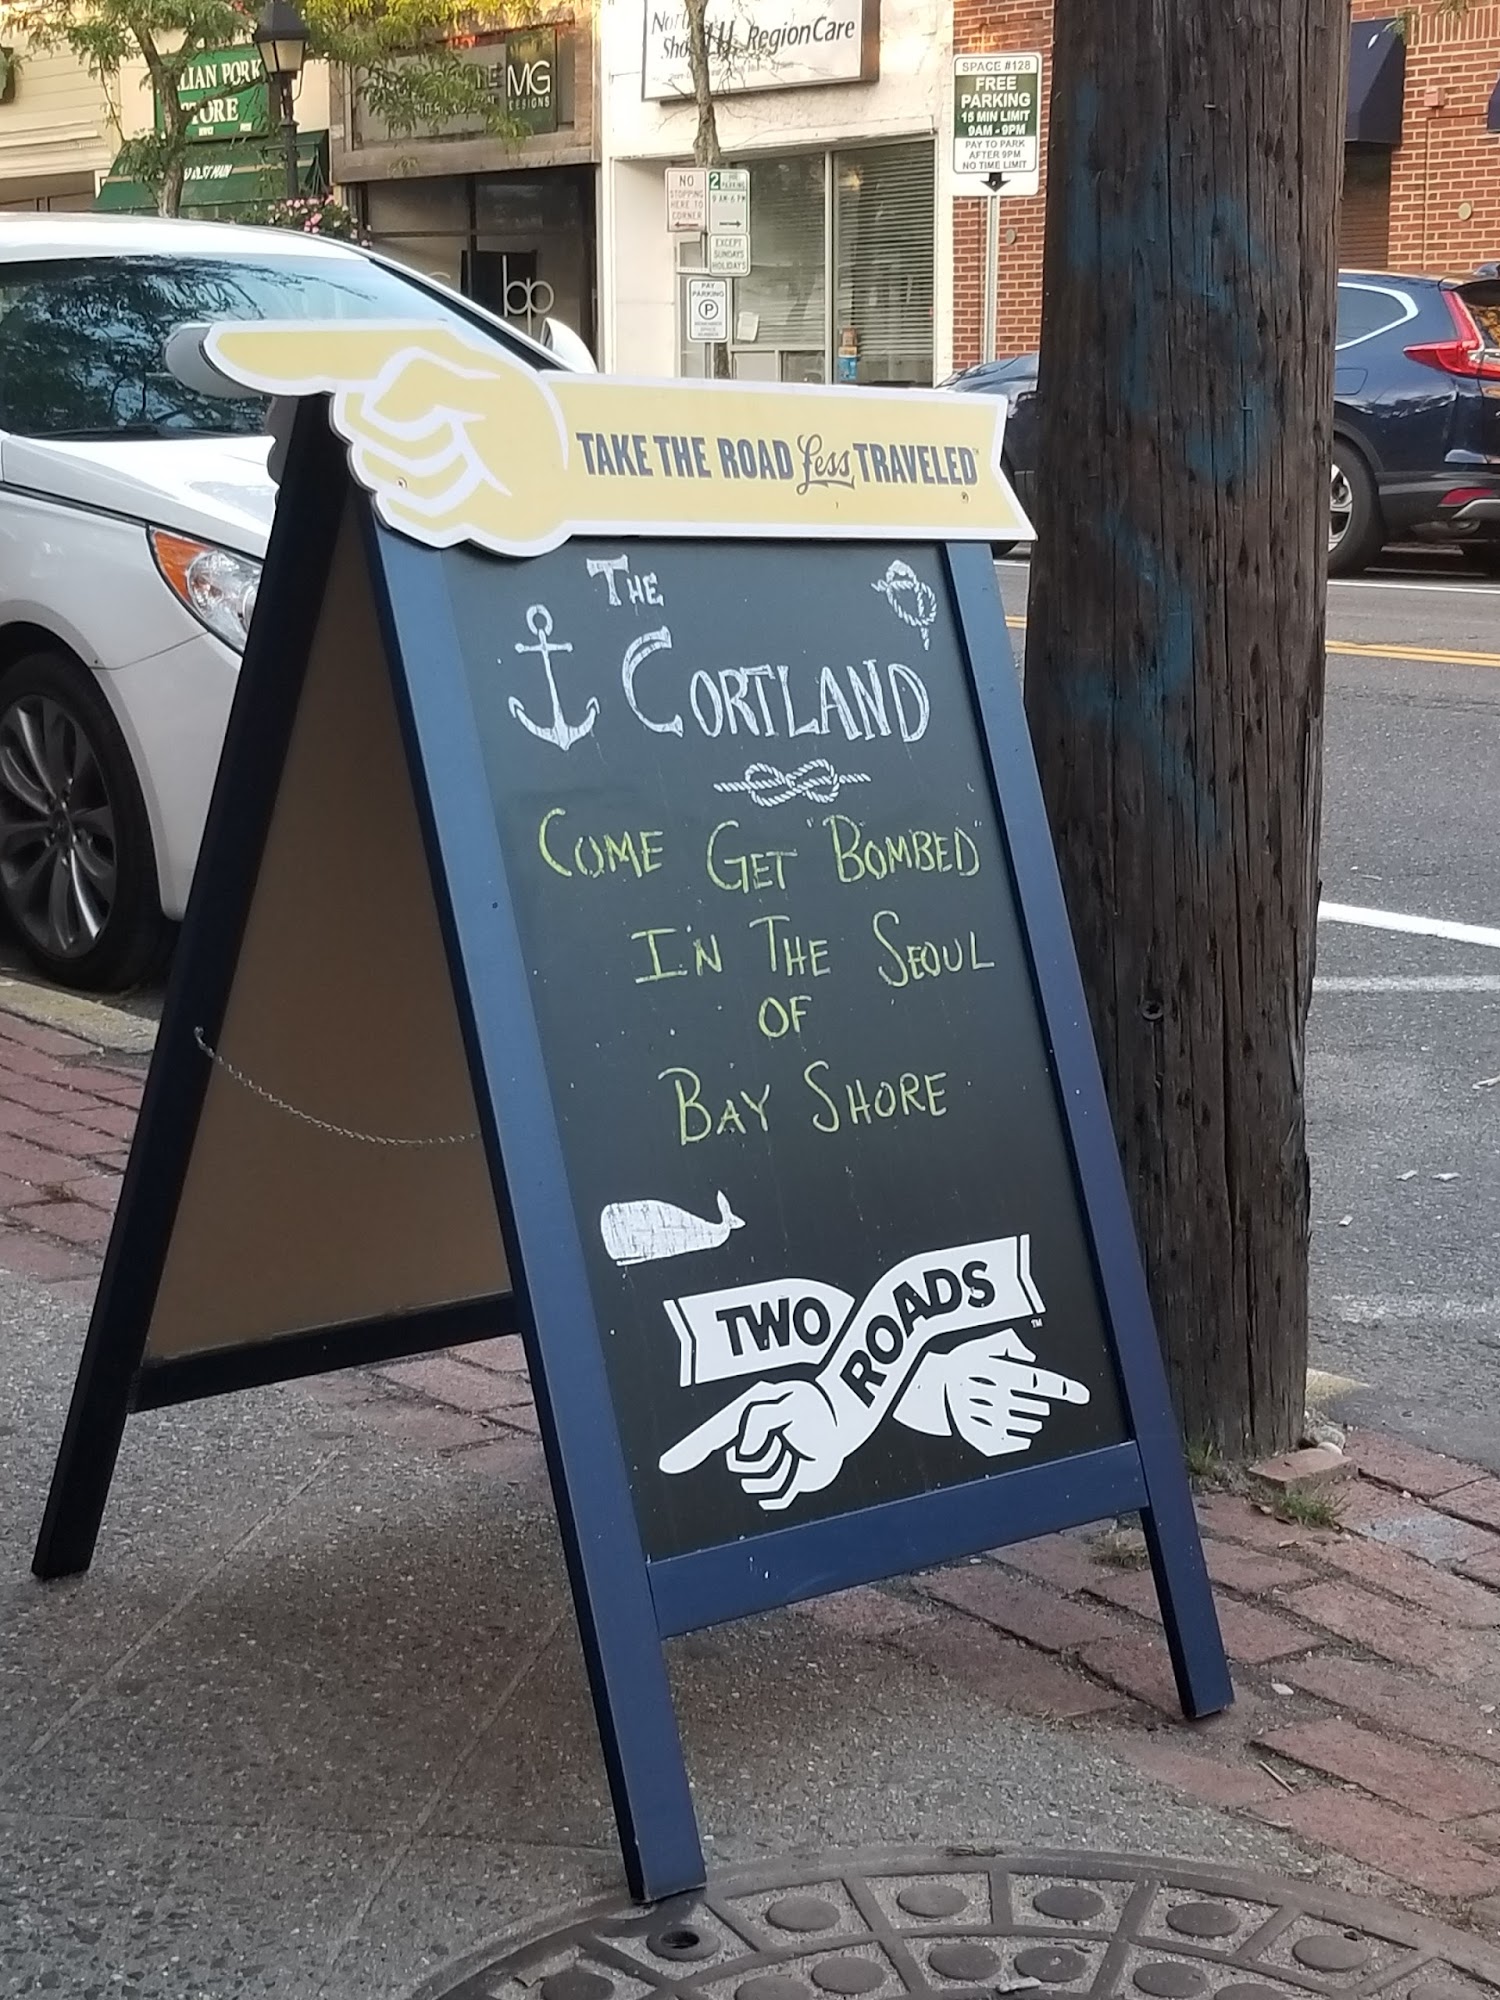 LIAN PORK
TORE
MG
DESIGNS
RegionCare
SPACE #128
FREE
PARKING
15 MIN LIMIT
9AM - 9PM
PAY TO PARK
AFTER 9PM
NO TIME LIMIT
NO
STOPPING
HERE TO
CORNER
2
9 AM-6 PM
EXCEPT
SUNDAYS
HOLIDAYS
PAY
PARKING
P
TAKE THE ROAD Less TRAVELED™
THE
CORTLAND
COME GET "BOMBED"
IN THE SEOUL
OF
BAY SHORE
TWO ROADS™